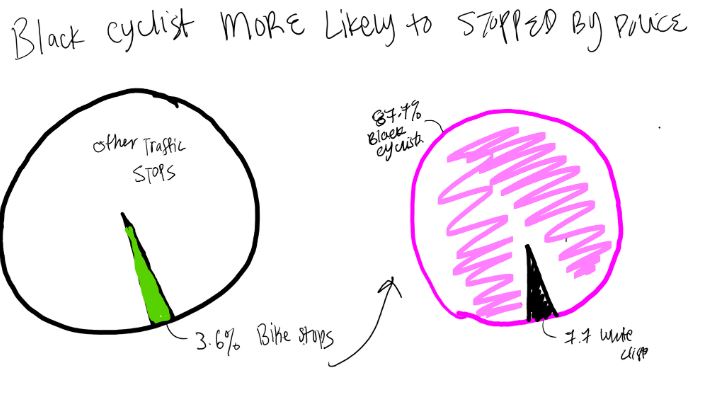 Black cyclist MORE Likely to STOPPED By POLICE
Other Traffic
STOPS
3.6% Bike stops
87.7%
Black
cyclists
7.7 White